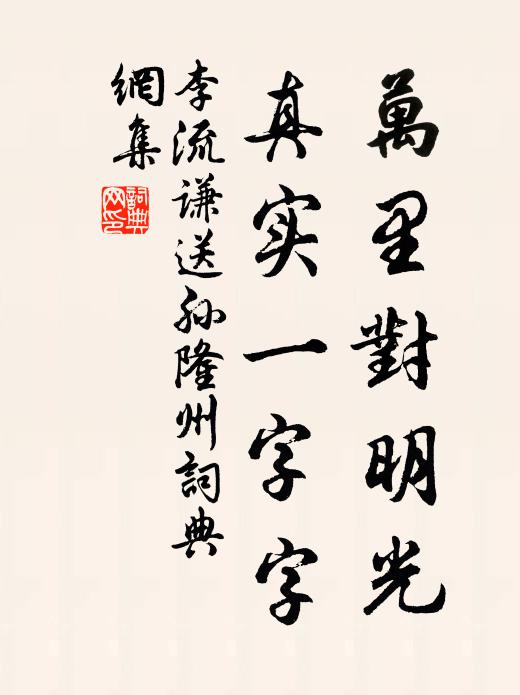 萬里對明光
真实一字字
李流谦送孙隆州詞典
網集
詞典
网印